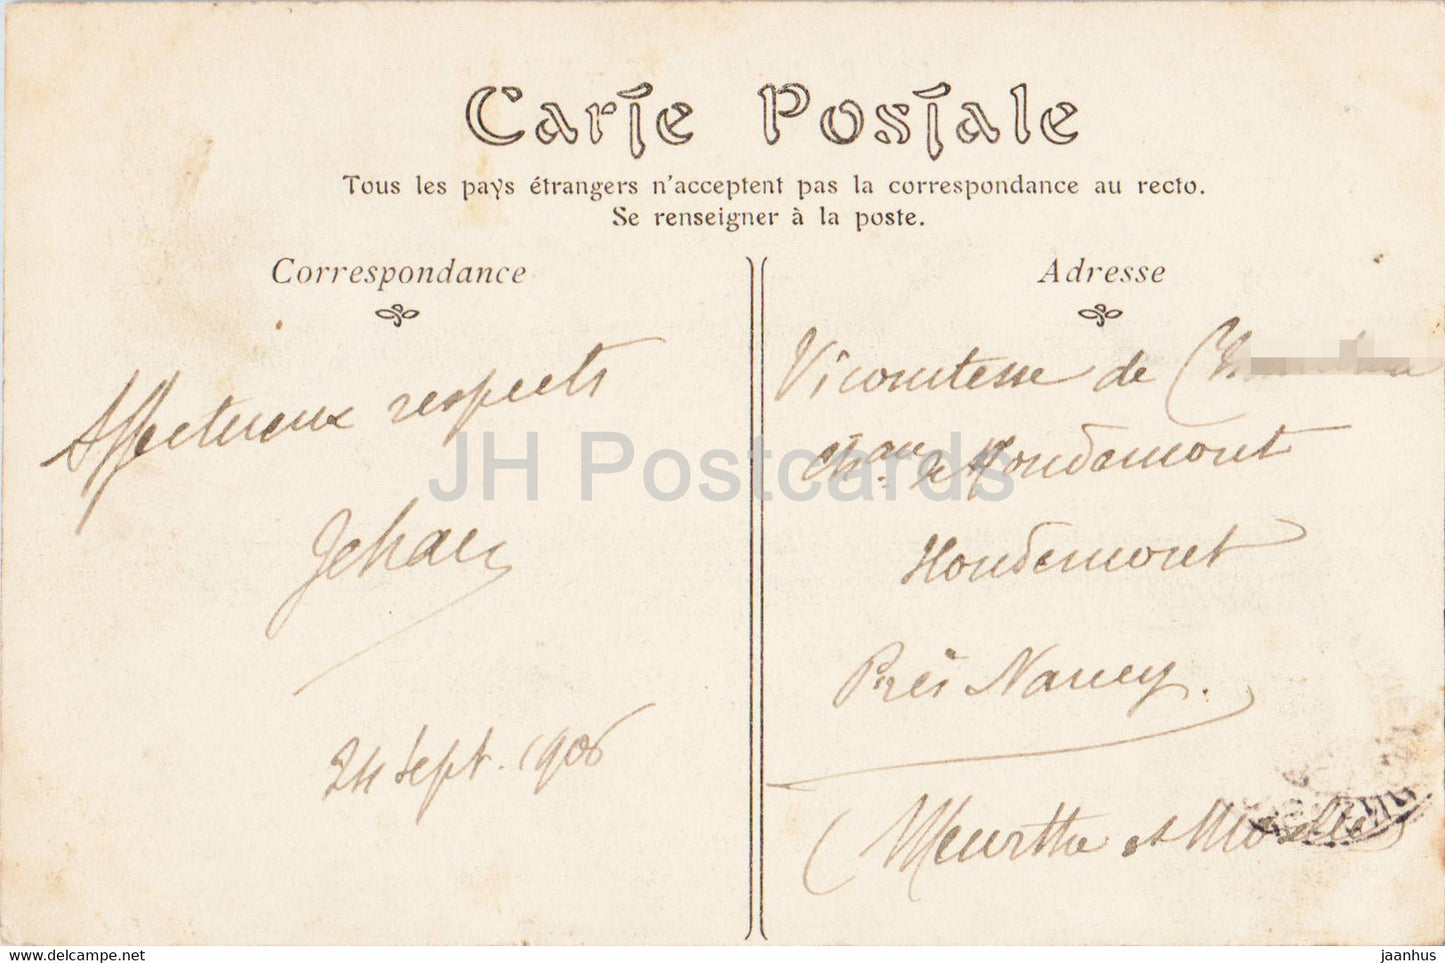 Carte Postale
Tous les pays étrangers n'acceptent pas la correspondance au recto.
Se renseigner à la poste.
Correspondance
Affectueux respects
Jehan
24 Sept. 1906
Adresse
Vicomtesse de
Chau de Houdemont
Houdemont
Près Nancy.
(Meurthe et Moselle)
JH Postcards
www.delcampe.net
jaanhus